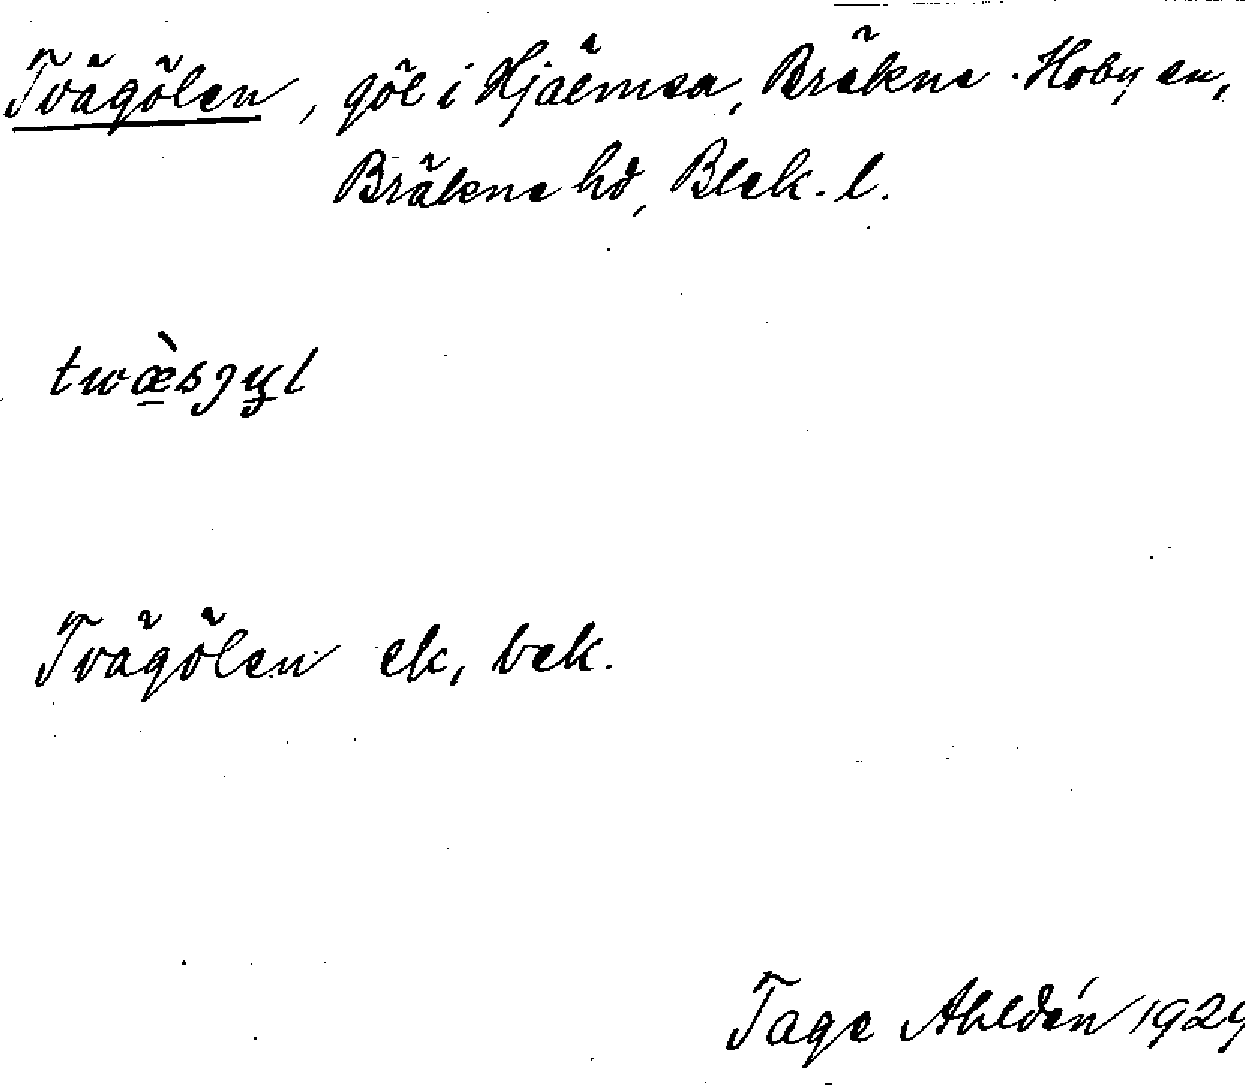 Tvägölen, göl i Hjälmsa, Bräkne-Hoby sn,
Bräkne hd, Blek. l.
Tvägölen ek, bek.
Tage Ahldén 1929